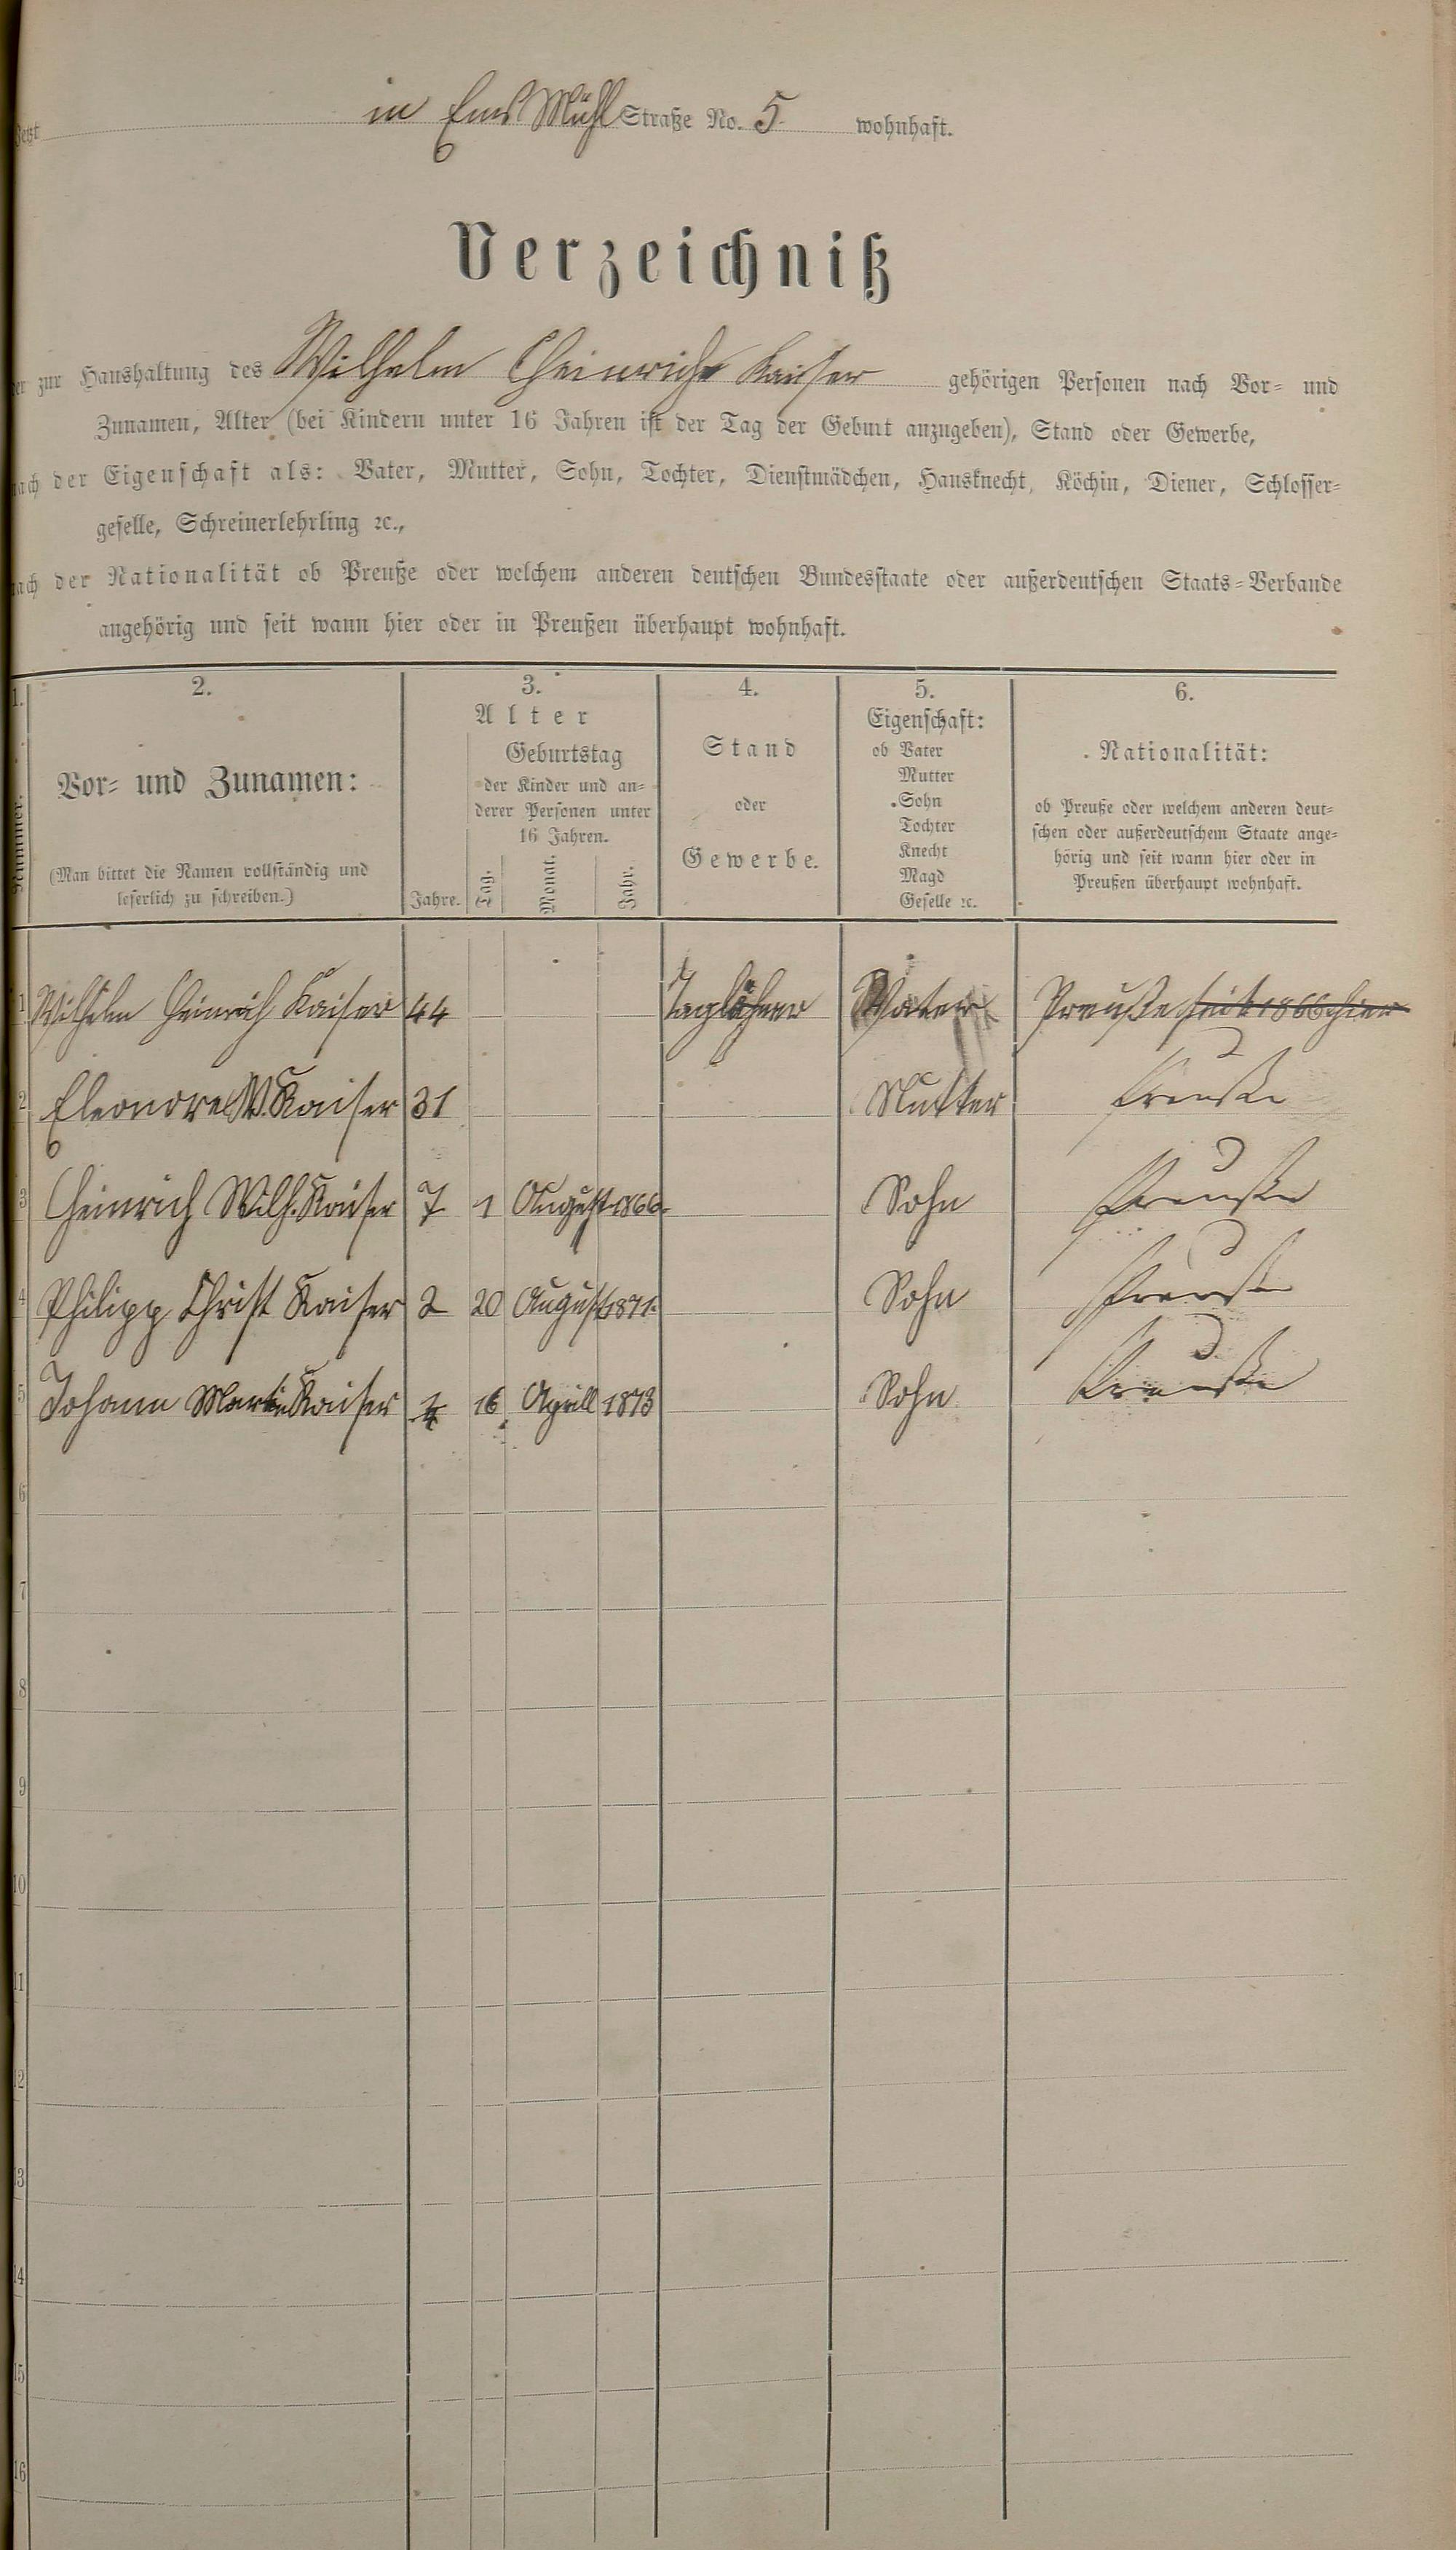 in Ems Mühl Straße No. 5. wohnhaft.
Verzeichniß
zur Haushaltung des Wilhelm Heinrich Kaiser gehörigen Personen nach Vor- und
Zunamen, Alter (bei Kindern unter 16 Jahren ist der Tag der Geburt anzugeben), Stand oder Gewerbe,
nach der Eigenschaft als: Vater, Mutter, Sohn, Tochter, Dienstmädchen, Hausknecht, Köchin, Diener, Schlosser-
geselle, Schreinerlehrling ꝛc.,
nach der Nationalität ob Preuße oder welchem anderen deutschen Bundesstaate oder außerdeutschen Staats-Verbande
angehörig und seit wann hier oder in Preußen überhaupt wohnhaft.
1. 2. 3. 4. 5. 6.
Nummer.
Vor- und Zunamen:
(Man bittet die Namen vollständig und
leserlich zu schreiben.)
Alter
Jahre.
Geburtstag
der Kinder und an-
derer Personen unter
16 Jahren.
Tag. Monat. Jahr.
Stand
oder
Gewerbe.
Eigenschaft:
ob Vater
Mutter
Sohn
Tochter
Knecht
Magd
Geselle ꝛc.
Nationalität:
ob Preuße oder welchem anderen deut-
schen oder außerdeutschem Staate ange-
hörig und seit wann hier oder in
Preußen überhaupt wohnhaft.
1 Wilhelm Heinrich Kaiser 44 Taglöhner Vater Preuße seit 1866 hier
2 Eleonore W. Kaiser 31 Mutter Preuße
3 Heinrich Wilh. Kaiser 7 1 August 1866. Sohn Preuße
4 Philipp Christ Kaiser 2 20 August 1871. Sohn Preuße
5 Johann Martin Kaiser 16 Aprill 1873 Sohn Preuße
6
7
8
9
10
11
12
13
14
15
16